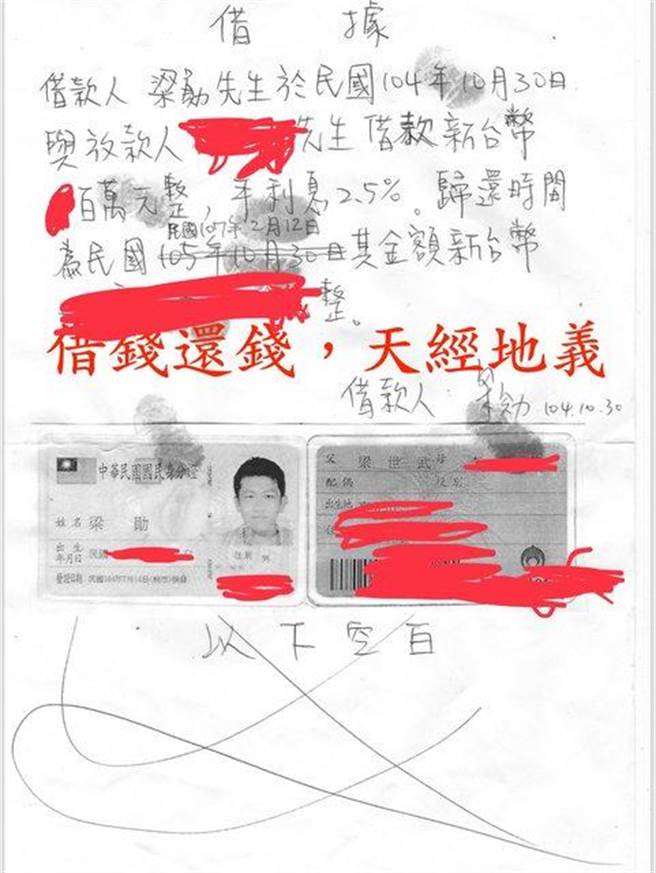 借據
借款人 梁勛先生於民國104年10月30日
與放款人 先生借款新台幣
百萬元整，年利息2.5%。歸還時間
民國107年2月12日
為民國105年10月30日其金額新台幣
整。
借錢還錢，天經地義
借款人 梁勛 104.10.30
中華民國國民身分證
姓名 梁 勛
出生年月日 民國
性別 男
發證日期 民國104年7月14日(桃市)換發
父 梁世武 母
配偶 役別
出生地
以下空白